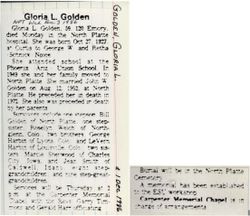 Gloria L. Golden
Gloria L. Golden, 59, 120 Emory,
died Monday in the North Platte
hospital. She was born Oct. 27, 1927,
at Curtis to George W. and Retha
Schrock Nance.
She attended school at the
Phoenix Ariz. Union School
1949 she and her family moved to
North Platte. She married John W.
Golden on Aug. 12, 1952, at North
Platte. He preceded her in death in
1972. She also was preceded in death
by her parents.
Survivors include one stepson, Bill
Golden of North Platte, one step-
sister, Roselyn Welch of North-
glenn, Colo., two brothers, George
Martin of Lyons, Colo., and LeVern
Martin of Colo., two
Marcie Sherwood of Charles
City, Iowa, and Jean Smith of
Oakland, eight
grandchildren and nine step-great-
grandchildren.
Services will be Thursday at 2
p.m. at the Carpenter Memorial
Chapel with the Revs. Garry Tim-
mons and Gerald Harr officiating.
Burial will be in the North Platte
Cemetery.
A memorial has been established
to the ESU workshop.
Carpenter Memorial Chapel is in
charge of arrangements.
GOLDEN, GLORIA L.
d 1 Dec. 1986